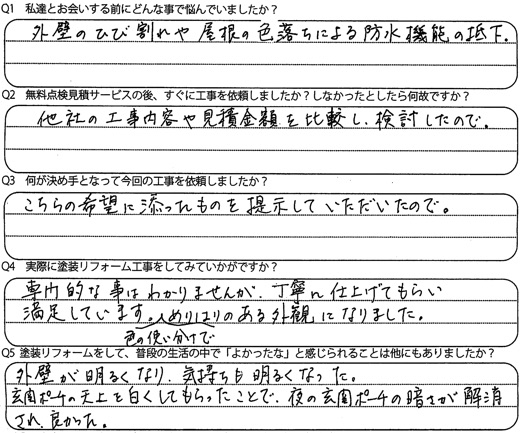 Q1 私達とお会いする前にどんな事で悩んでいましたか？
外壁のひび割れや屋根の色落ちによる防水機能の抵下.
Q2 無料点検見積サービスの後、すぐに工事を依頼しましたか？しなかったとしたら何故ですか？
他社の工事内容や見積金額を比較し、検討したので。
Q3 何が決め手となって今回の工事を依頼しましたか？
こちらの希望に添ったものを提示していただいたので。
Q4 実際に塗装リフォーム工事をしてみていかがですか？
専門的な事はわかりませんが、丁寧に仕上げてもらい
満足しています。めりはりのある外観になりました。
色の使い分けで
Q5 塗装リフォームをして、普段の生活の中で「よかったな」と感じられることは他にもありましたか？
外壁が明るくなり、気持ちも明るくなった。
玄関ポーチの天上を白くしてもらったことで、夜の玄関ポーチの暗さが解消
され、良かった。